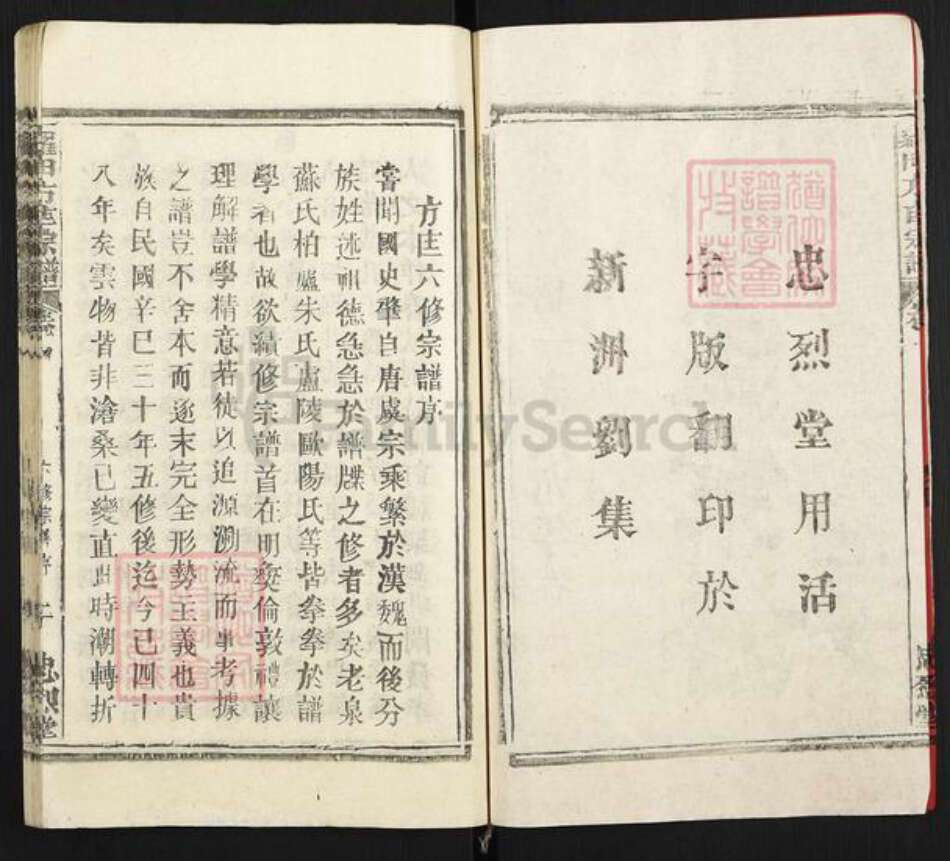 忠烈堂用活
字版翻印於
新洲劉集
方氏六修宗譜序
嘗聞國史肇自唐虞宗乘繁於漢魏而後分
族姓述祖德急急於譜牒之修者多矣老泉
蘇氏柏廬朱氏廬陵歐陽氏等皆拳拳於譜
學者也故欲續修宗譜首在明彝倫敦禮讓
理解譜學精意若徒以追源溯流而事考據
之譜豈不舍本而逐末完全形勢主義也貴
族自民國辛巳三十年五修後迄今已四十
八年矣雲物皆非滄桑已變直此時潮轉折
六修宗譜序
忠烈堂
FamilySearch